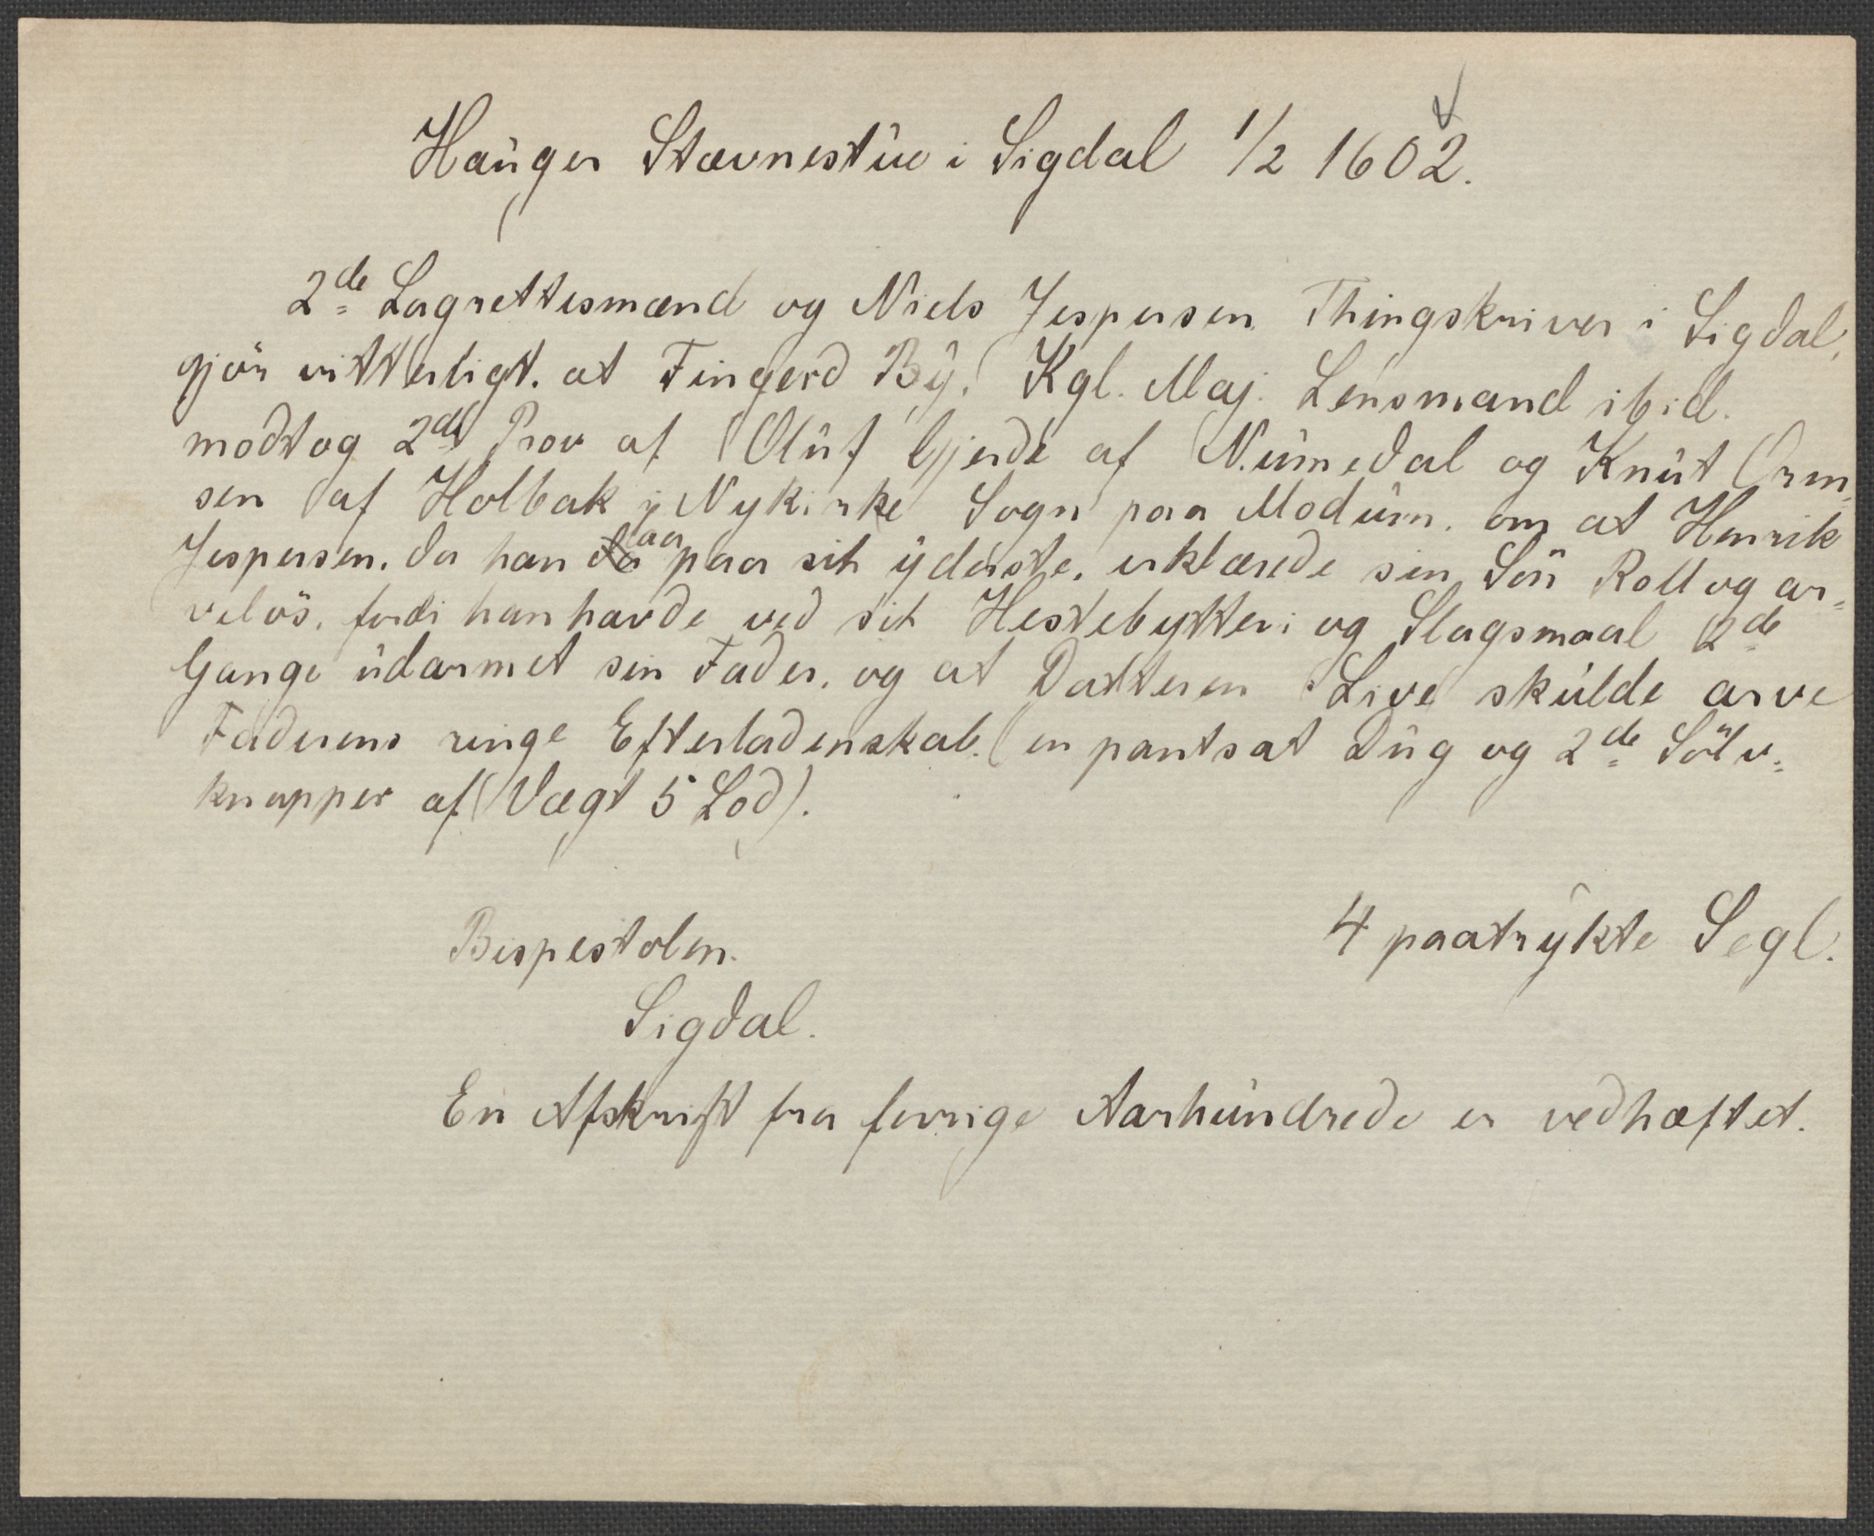 Hauger Stævnestue i Sigdal 1/2 1602.
2de Lagrettesmænd og Niels Jespersen Thingskriver i Sigdal,
gjör vitterligt. at Fingerd By, Kgl. Maj. Lensmand ibid.
modtog 2de Prov af Oluf Gjerde af Numedal og Knut Orm-
sen af Holbak i Nykirke Sogn paa Modum. om at Henrik
Jespersen. da han laa paa sit yderste. erklærede sin Sön Roll og ar-
velös. fordi han havde ved sit Hestebytteri og Slagsmaal 2de
Gange udarmet sin Fader. og at Datteren Live skulde arve
Faderens ringe Efterladenskab. (en pantsat Dug og 2de Sölv-
knapper af Vægt 5 Lod).
4 paatrykte Segl.
Bispestolen.
Sigdal.
En Afskrift fra forrige Aarhundrede er vedhæftet.